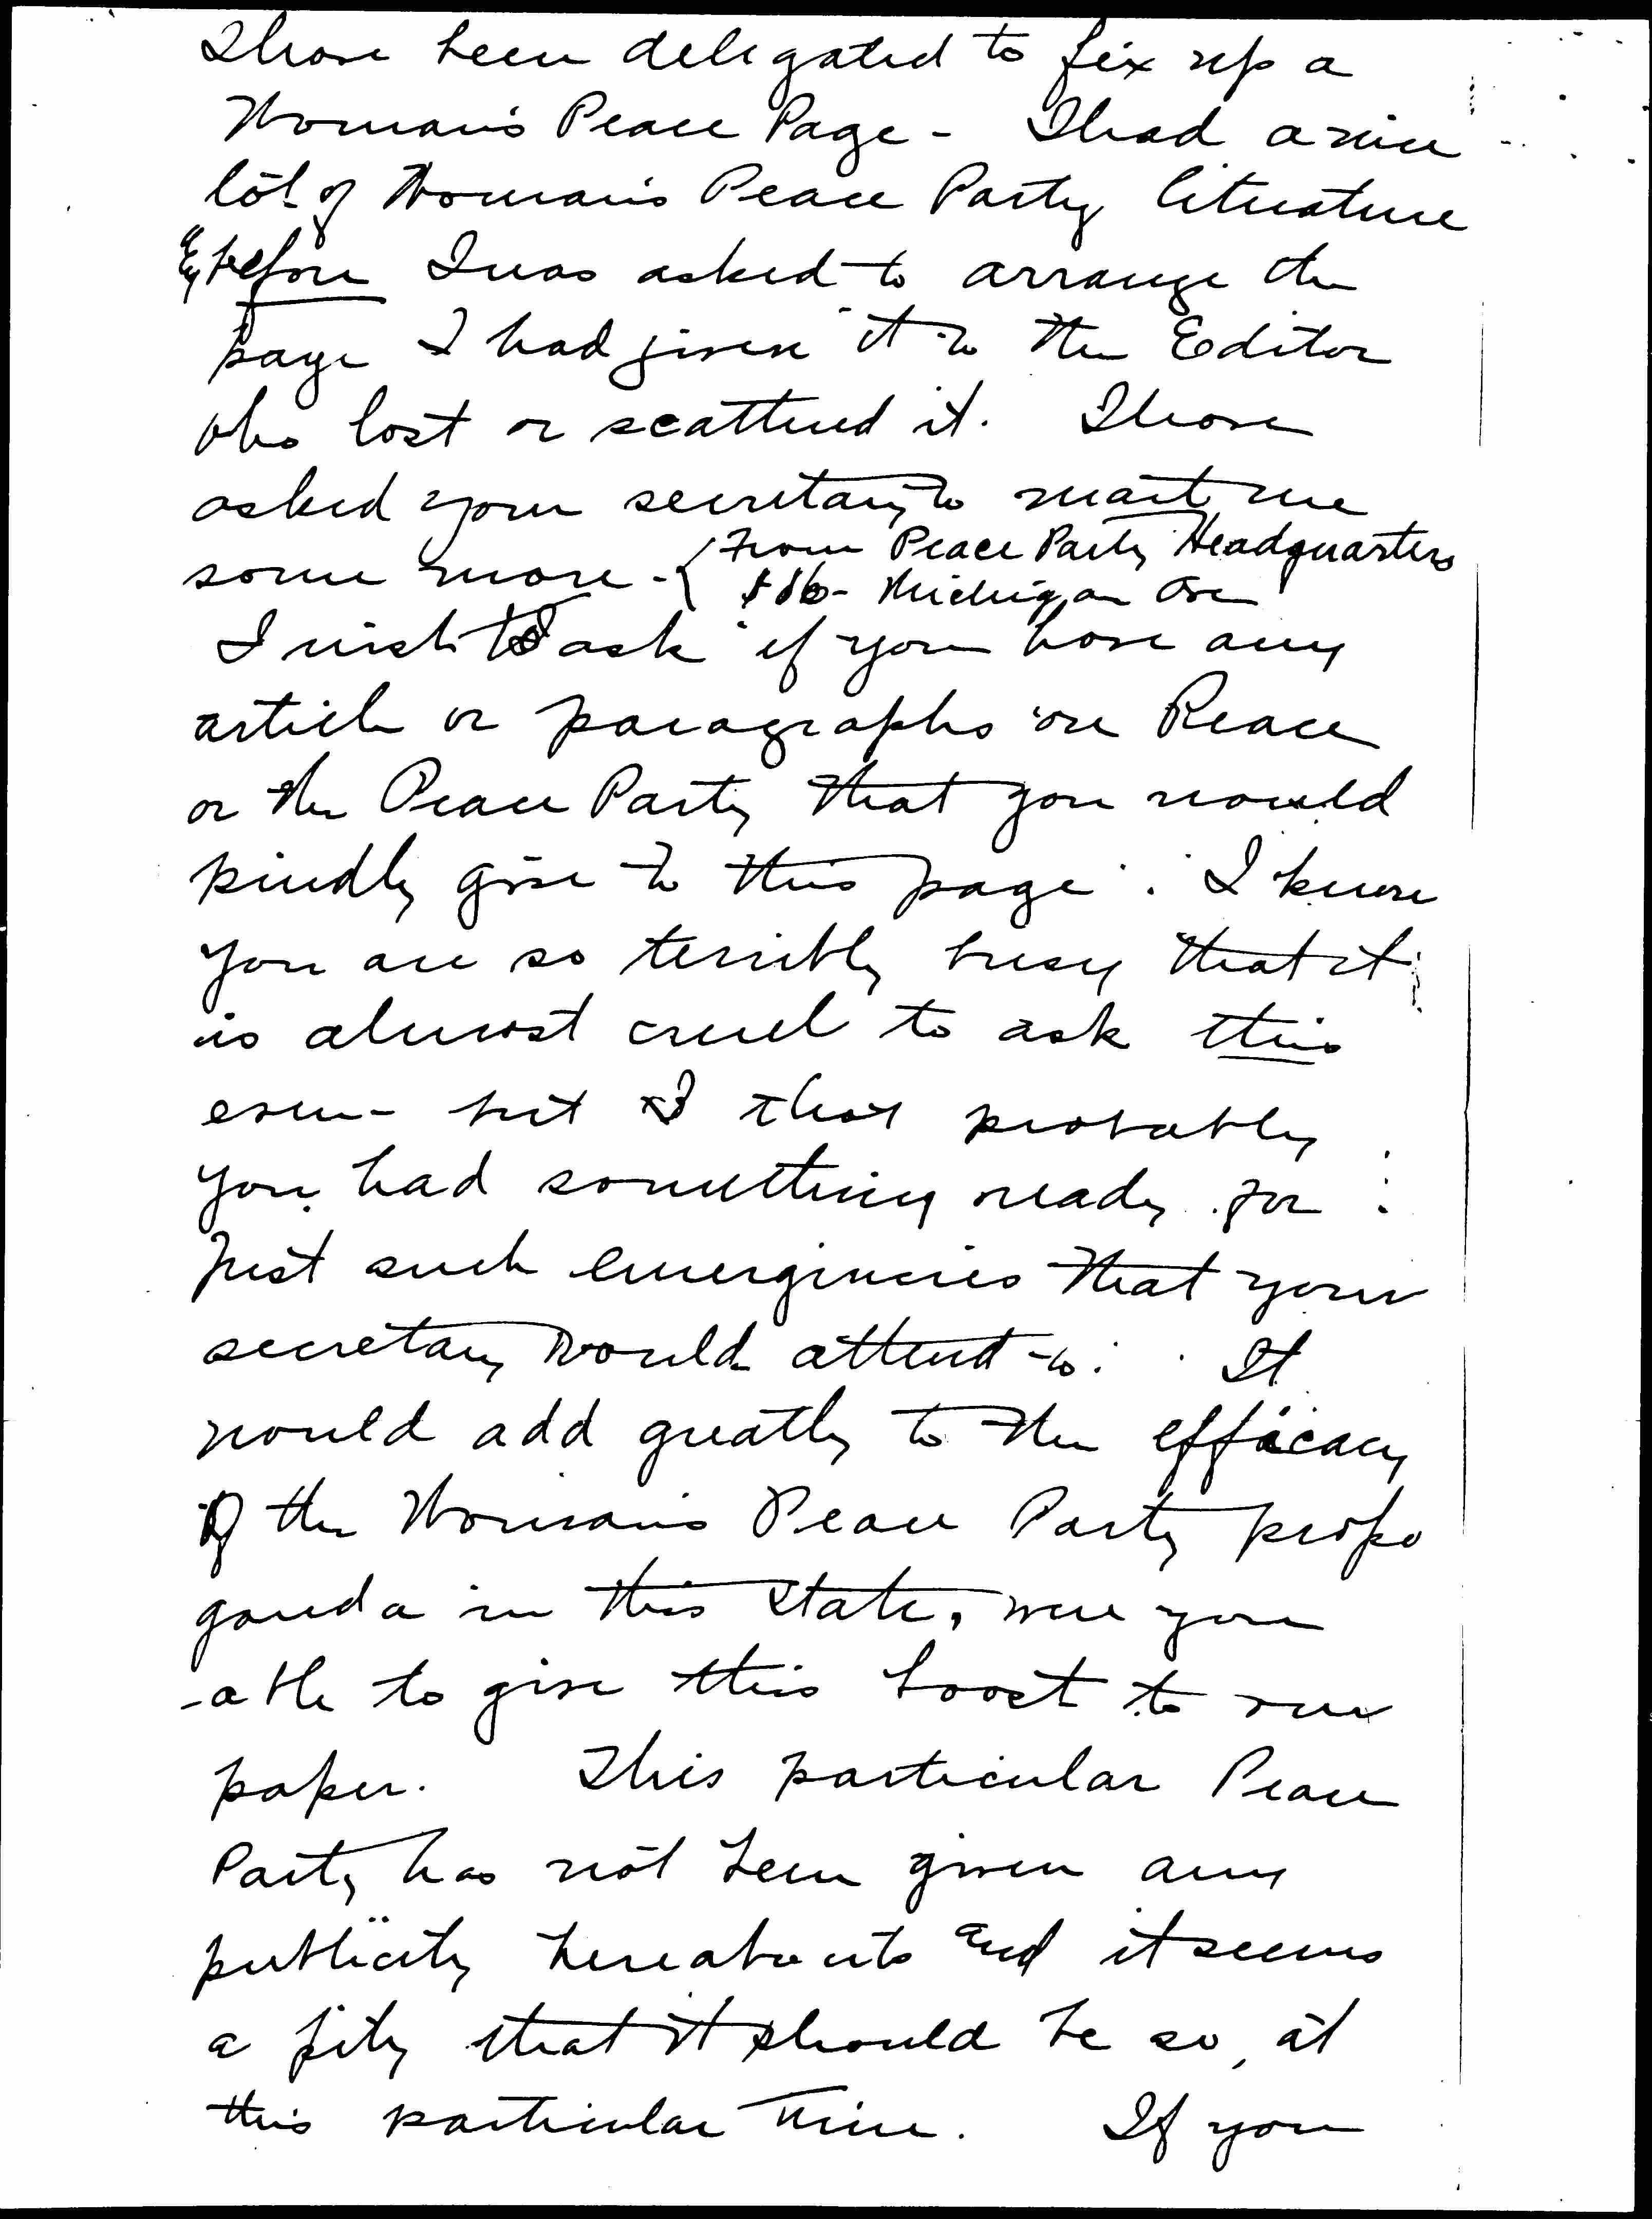 I have been delegated to fix up a
Woman's Peace Page - I had a nice
lot of Woman's Peace Party literature
& before I was asked to arrange the
page I had given it to the Editor
who lost or scattered it. I have
asked your secretary to mail me
some more - { from Peace Party Headquarters
116 - Michigan Ave
I wish to ask if you have any
article or paragraphs on Peace
or the Peace Party that you would
kindly give to this page. I know
you are so terribly busy that it
is almost cruel to ask this
even - but I thot probably
you had something ready for
just such emergencies that your
secretary would attend to. It
would add greatly to the efficacy
of the Woman's Peace Party propo
ganda in this State, were you
able to give this boost to our
paper. This particular Peace
Party has not been given any
publicity hereabouts and it seems
a pity that it should be so, at
this particular time. If you